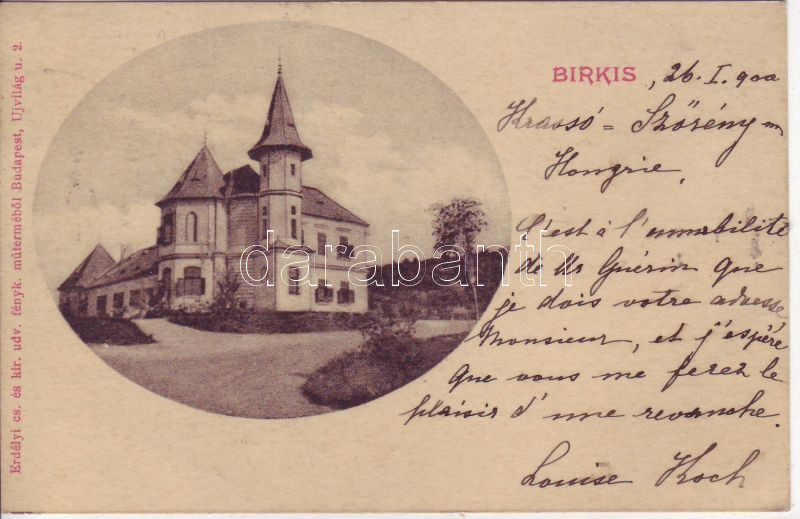 Erdélyi cs. és kir. udv. fényk. műterméből Budapest, Ujvilág u. 2.
BIRKIS , 26. I. 900
Krassó = Szörény m
Hongrie.
C'est à l'amabilité
de Mr Guérin que
je dois votre adresse
Monsieur, et j'espère
que vous me ferez le
plaisir d'une revanche.
Louise Koch
darabanth